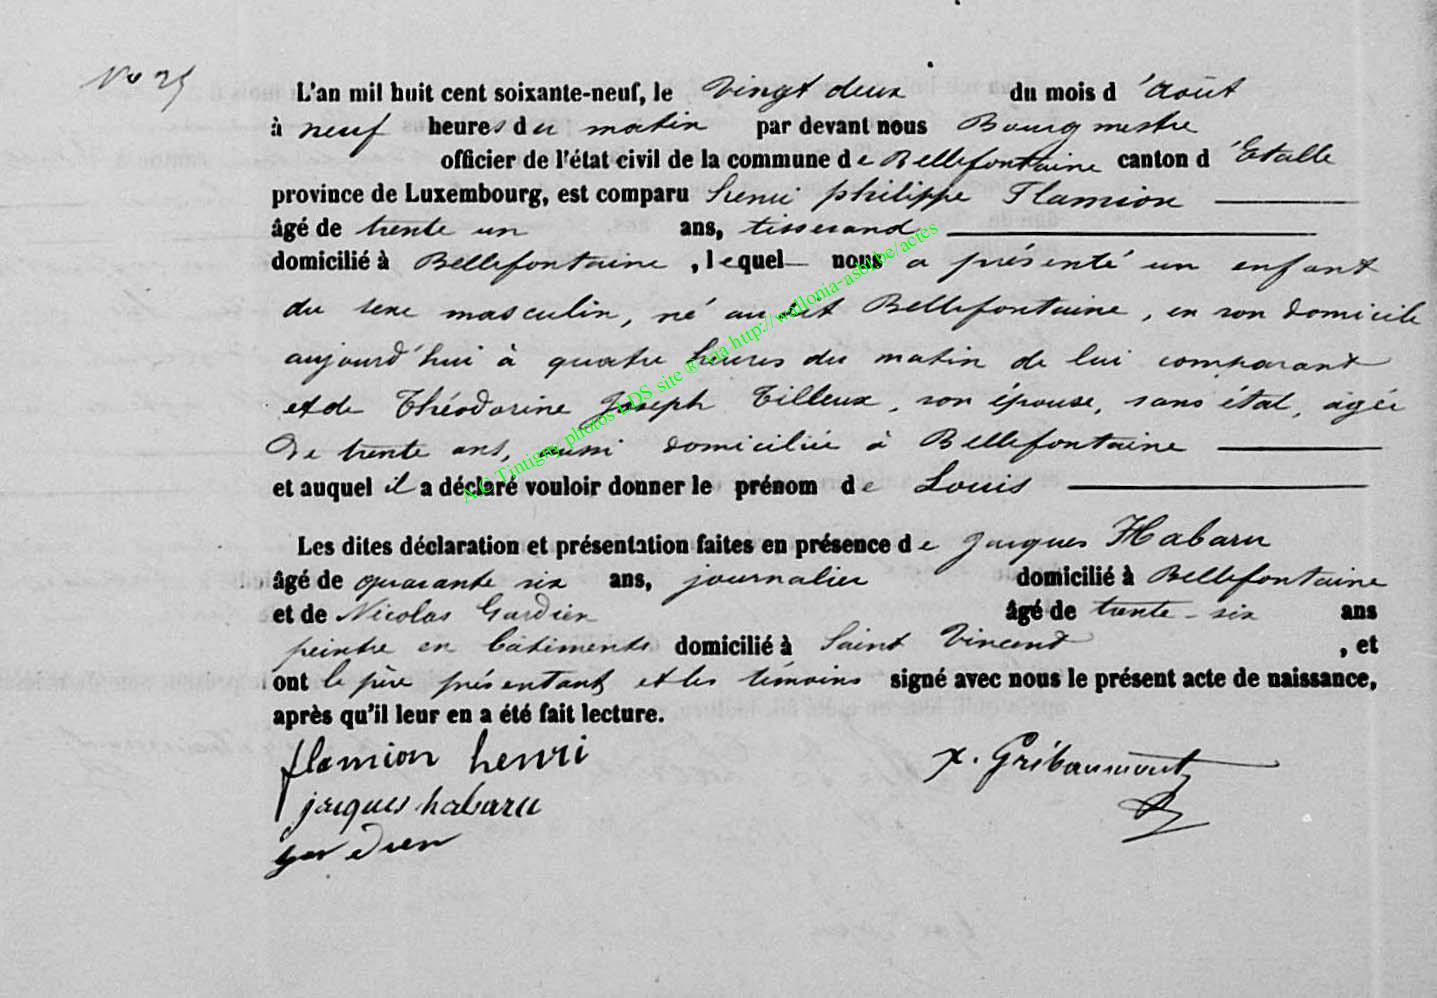 No 25
L'an mil huit cent soixante-neuf, le Vingt deux du mois d'Août
à neuf heures du matin par devant nous Bourgmestre
officier de l'état civil de la commune de Bellefontaine canton d'Etalle
province de Luxembourg, est comparu henri philippe Flamion
âgé de trente un ans, tisserand
domicilié à Bellefontaine, lequel nous a présenté un enfant
du sexe masculin, né audit Bellefontaine, en son domicile
aujourd'hui à quatre heures du matin de lui comparant
et de Théodorine Joseph Tilleux, son épouse, sans état, agée
De trente ans, aussi domiciliée à Bellefontaine
et auquel il a déclaré vouloir donner le prénom de Louis
Les dites déclaration et présentation faites en présence de Jacques Habaru
âgé de quarante six ans, journalier domicilié à Bellefontaine
et de Nicolas Gardien âgé de trente-six ans
peintre en bâtiments domicilié à Saint Vincent, et
ont le père présentant et les témoins signé avec nous le présent acte de naissance,
après qu'il leur en a été fait lecture.
flamion henri
x. Gribaumont
jacques habaru
gardien
AC Tintigny photos LDS site ® via http://wallonia-asbl.be/actes